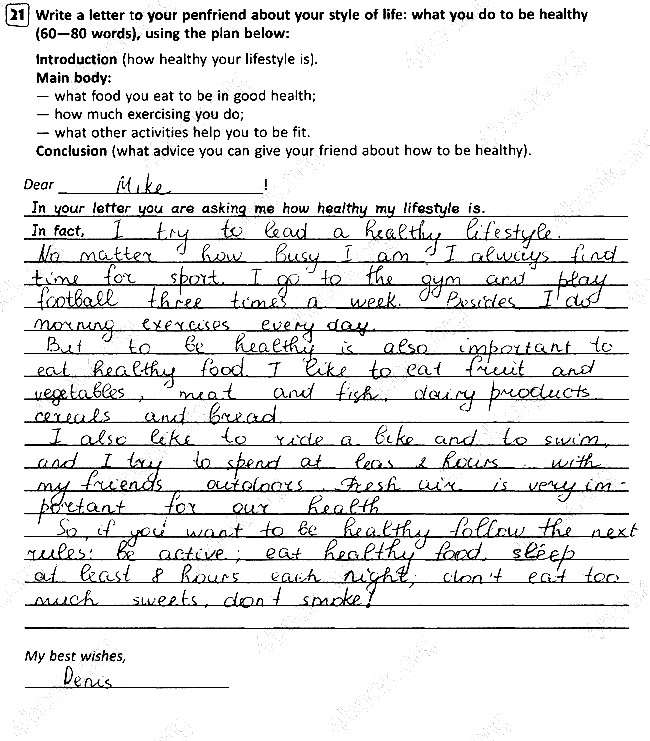 21 Write a letter to your penfriend about your style of life: what you do to be healthy
(60—80 words), using the plan below:
Introduction (how healthy your lifestyle is).
Main body:
— what food you eat to be in good health;
— how much exercising you do;
— what other activities help you to be fit.
Conclusion (what advice you can give your friend about how to be healthy).
Dear Mike !
In your letter you are asking me how healthy my lifestyle is.
In fact, I try to lead a healthy lifestyle.
No matter how busy I am, I always find
time for sport. I go to the gym and play
football three times a week. Besides I do
morning exercises every day.
But to be healthy is also important to
eat healthy food. I like to eat fruit and
vegetables, meat and fish, dairy products
cereals and bread
I also like to ride a bike and to swim,
and I try to spend at leas 2 hours with
my friends outdoors. Fresh air is very im-
portant for our health
So, if you want to be healthy follow the next
rules: be active; eat healthy food, sleep
at least 8 hours each night; don't eat too
much sweets, don't smoke!
My best wishes,
Denis